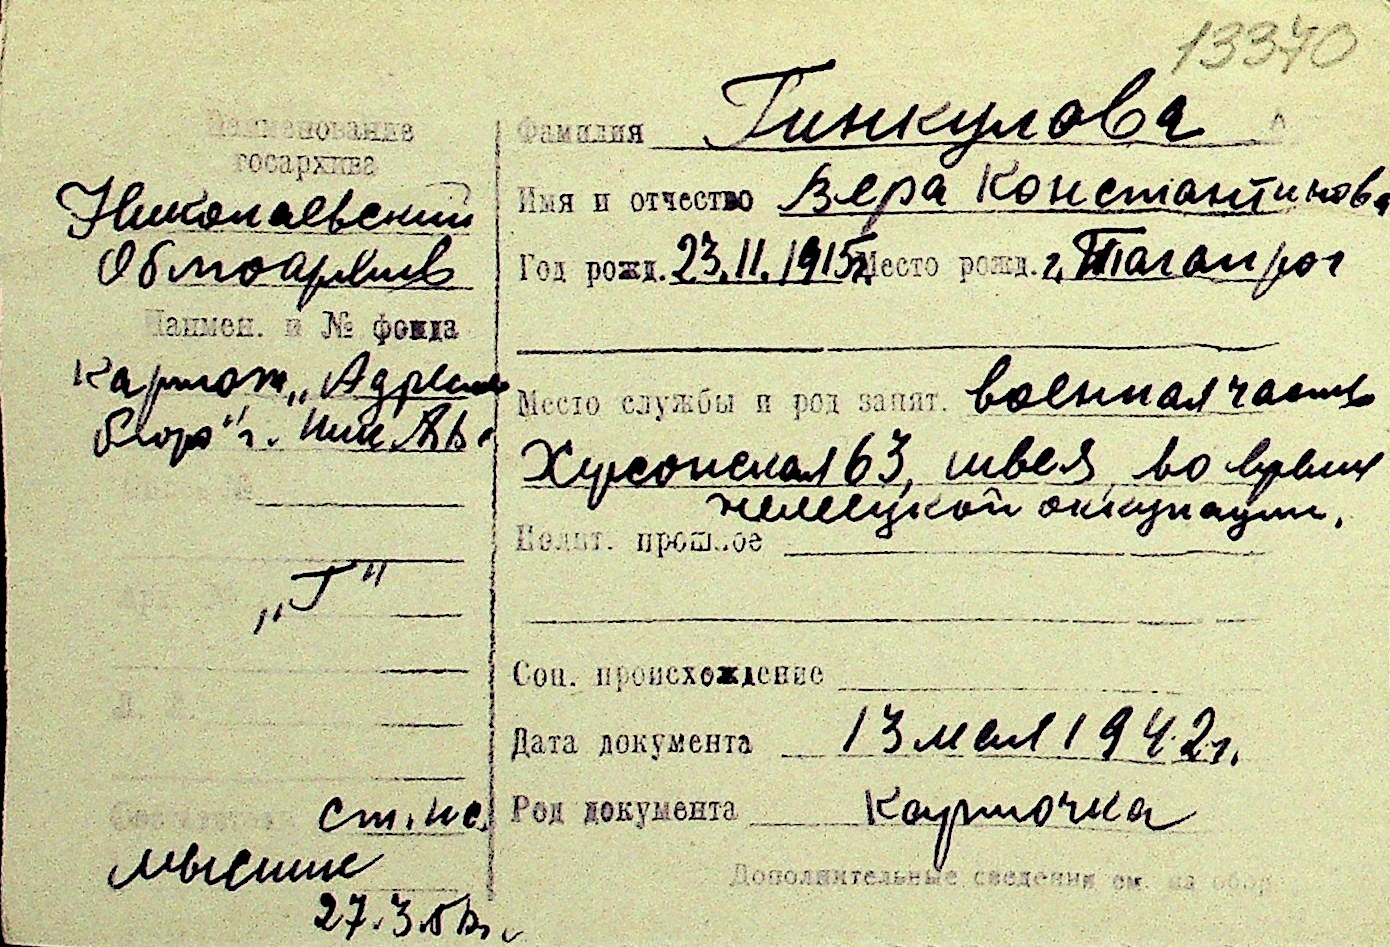 13370
Наименование
госархива
Николаевский
Облгосархив
Наимен. и № фонда
Картот. „Адресн.
бюро" г.
Опись №
„Г"
Арх. №
Л. Л.
Составитель ст. н.с.
27.3.
Фамилия Гинкулова
Имя и отчество Вера Константинова
Год рожд. 23.11.1915 Место рожд. г. Таганрог
Место службы и род занят. военная часть
Херсонская 63, швея, во время
немецкой оккупации.
Полит. прошлое
Соц. происхождение
Дата документа 13 мая 1942 г.
Род документа карточка
Дополнительные сведения см. на обор.